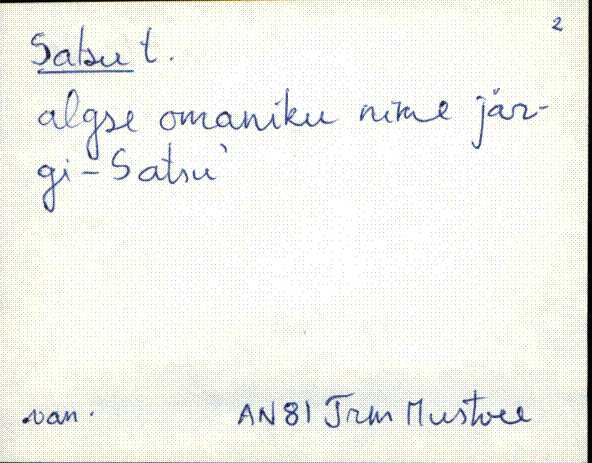 2
Satsu t.
algse omaniku nime jär-
gi - Satsu'
van.
AN 81 Trm Mustvee